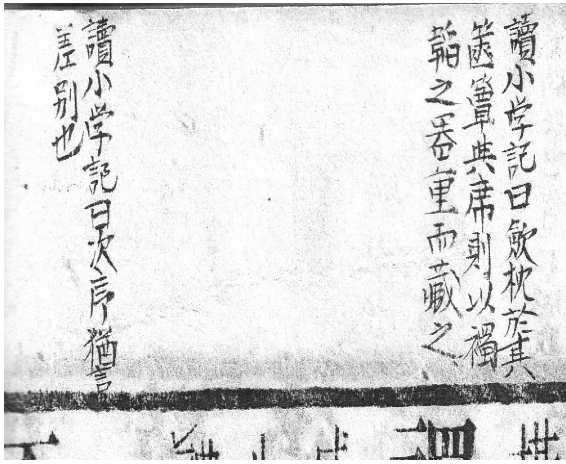 讀小学記曰歛枕於其
篋簟與席則以襡
韜之器重而藏之
讀小学記曰次序猶言
差別也